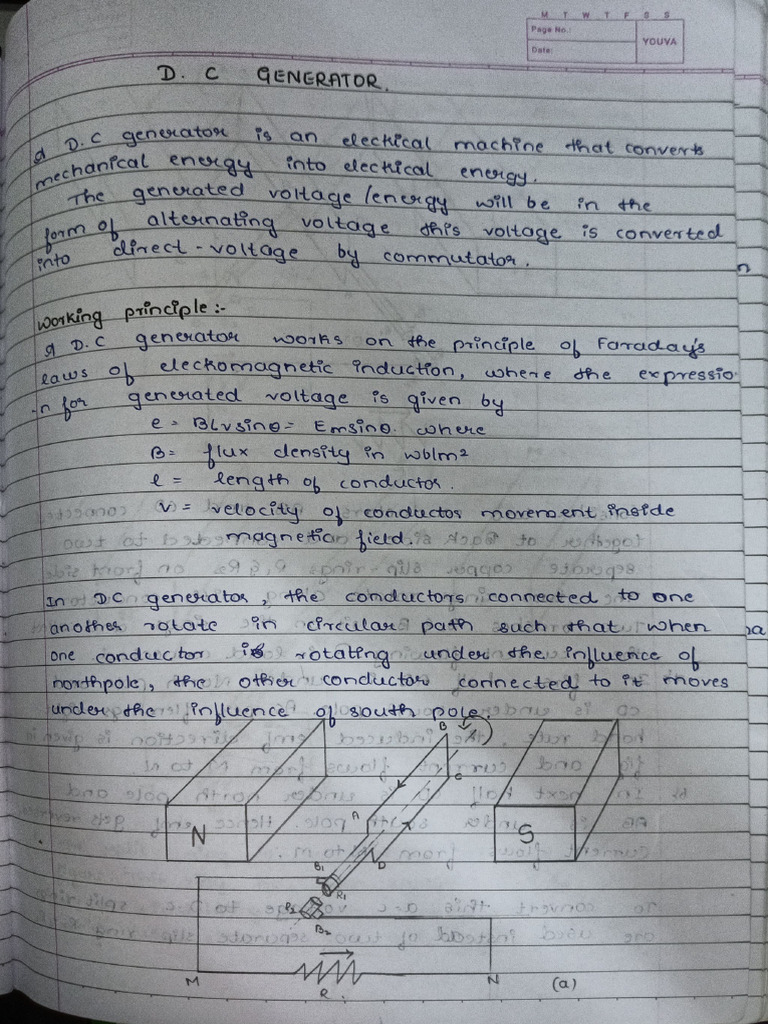 M T W T F S S
Page No.:
Date:
YOUVA
D. C GENERATOR.
A D.C generator is an electrical machine that converts
mechanical energy into electrical energy.
The generated voltage/energy will be in the
form of alternating voltage this voltage is converted
into direct-voltage by commutator.
working principle:-
A D.C generator works on the principle of Faraday's
laws of electromagnetic induction, where the expressio
-n for generated voltage is given by
e = BLvsinθ = Emsinθ. where
B = flux density in wb/m²
l = length of conductor.
v = velocity of conductor movement inside
magnetic field.
In DC generator, the conductors connected to one
another rotate in circular path such that when
one conductor is rotating under the influence of
northpole, the other conductor connected to it moves
under the influence of south pole.
B
C
A
N
S
D
B1
R1
R2
B2
M
R.
N
(a)